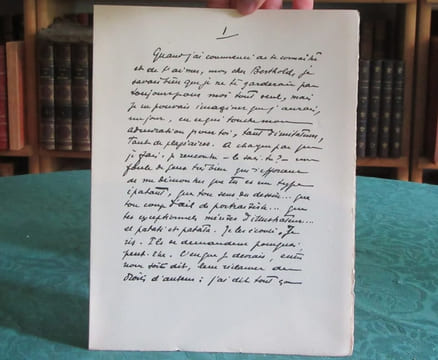 I
Quand j'ai commencé de te connaître
et de t'aimer, mon cher Berthold, je
savais bien que je ne te garderais pas
toujours pour moi tout seul, mais
je ne pouvais imaginer que j'aurais,
un jour, en ce qui touche mon
admiration pour toi, tant d'imitateurs,
tant de plagiaires. A chaque pas que
je fais, je rencontre - le sais-tu? - une
foule de gens très bien qui s'efforcent
de me démontrer que tu es un type
épatant, que ton sens du dessin... que
ton coup d'œil de portraitiste... que
tes exceptionnels mérites d'illustrateur...
et patati et patata. Je les écoute. Je
ris. Ils se demandent pourquoi,
peut-être. C'est que je devrais, entre
nous soit dit, leur réclamer des
droits d'auteur : j'ai dit tout ça